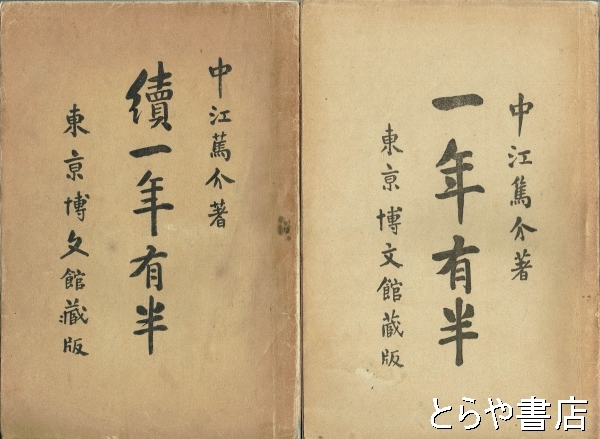 中江篤介著
一年有半
東京博文館蔵版
中江篤介著
續一年有半
東京博文館蔵版
とらや書店